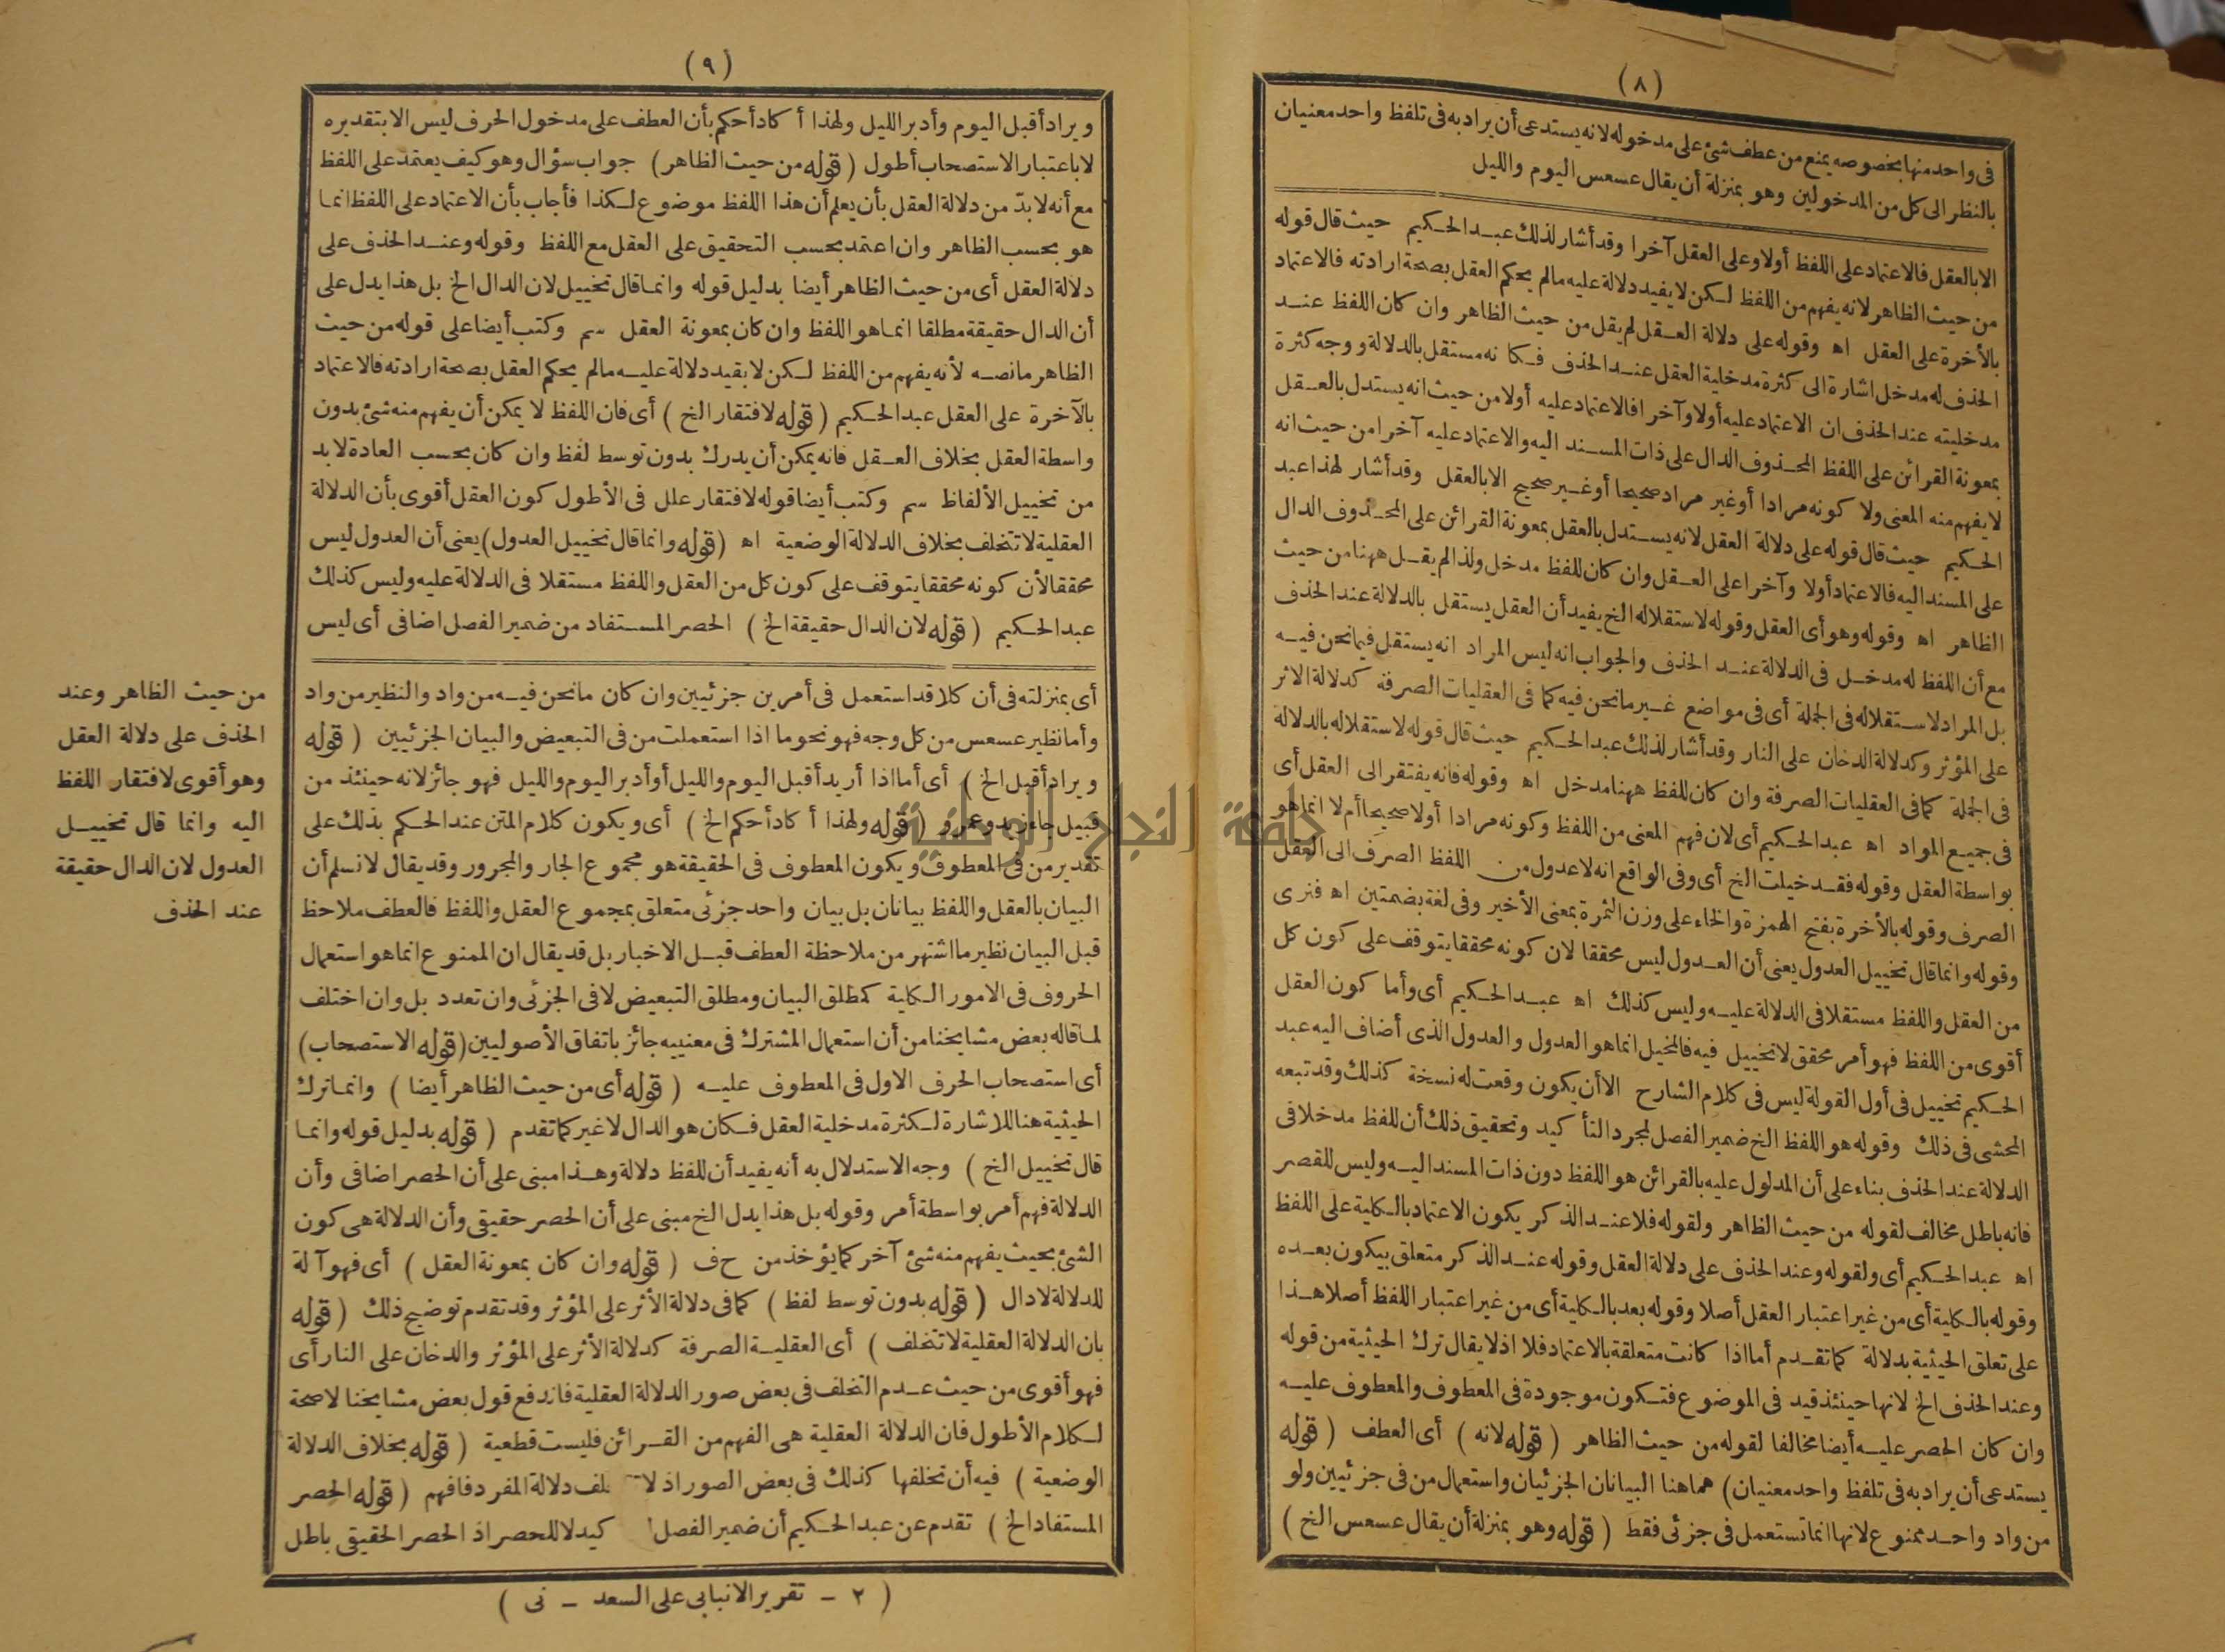 (٨)
فى واحد منها بخصوصه يمنع من عطف شئ على مدخوله لانه يستدعى أن يراد به فى تلفظ واحد معنيان
بالنظر الى كل من المدخولين وهو بمنزلة أن يقال عسعس اليوم والليل
الا بالعقل فالاعتماد على اللفظ أولا وعلى العقل آخرا وقد أشار لذلك عبد الحكيم حيث قال قوله
من حيث الظاهر لانه يفهم من اللفظ لكن لا يفيد دلالة عليه مالم يحكم العقل بصحة ارادته فالاعتماد
بالأخرة على العقل اه وقوله على دلالة العقل لم يقل من حيث الظاهر وان كان اللفظ عند
الحذف له مدخل اشارة الى كثرة مدخلية العقل عند الحذف فكانه مستقل بالدلالة ووجه كثرة
مدخليته عند الحذف ان الاعتماد عليه أولا وآخرا فالاعتماد عليه أولا من حيث انه يستدل بالعقل
بمعونة القرائن على اللفظ المحذوف الدال على ذات المسند اليه والاعتماد عليه آخرا من حيث انه
لا يفهم منه المعنى ولا كونه مرادا أو غير مراد صحيحا أو غير صحيح الا بالعقل وقد أشار لهذا عبد
الحكيم حيث قال قوله على دلالة العقل لانه يستدل بالعقل بمعونة القرائن على المحذوف الدال
على المسند اليه فالاعتماد أولا وآخرا على العقل وان كان للفظ مدخل ولذا لم يقل ههنا من حيث
الظاهر اه وقوله وهو أى العقل وقوله لاستقلاله الخ يفيد أن العقل يستقل بالدلالة عند الحذف
مع أن اللفظ له مدخل فى الدلالة عند الحذف والجواب انه ليس المراد انه يستقل فيما نحن فيه
بل المراد لاستقلاله فى الجملة أى فى مواضع غير ما نحن فيه كما فى العقليات الصرفة كدلالة الاثر
على المؤثر وكدلالة الدخان على النار وقد أشار لذلك عبد الحكيم حيث قال قوله لاستقلاله بالدلالة
فى الجملة كما فى العقليات الصرفة وان كان للفظ ههنا مدخل اه وقوله فانه يفتقر الى العقل أى
فى جميع المواد اه عبد الحكيم أى لان فهم المعنى من اللفظ وكونه مرادا أولا صحيحا أم لا انما هو
بواسطة العقل وقوله فقد خيلت الخ أى وفى الواقع انه لا عدول من اللفظ الصرف الى العقل
الصرف وقوله بالأخرة بفتح الهمزة والخاء على وزن الثمرة بمعنى الأخير وفى لغة بضمتين اه فنرى
وقوله وانما قال تخييل العدول يعنى أن العدول ليس محققا لان كونه محققا يتوقف على كون كل
من العقل واللفظ مستقلا فى الدلالة عليه وليس كذلك اه عبد الحكيم أى وأما كون العقل
أقوى من اللفظ فهو أمر محقق لا تخييل فيه فالمخيل انما هو العدول والعدول الذى أضاف اليه عبد
الحكيم تخييل فى أول القولة ليس فى كلام الشارح الا أن يكون وقعت له نسخة كذلك وقد تبعه
المحشى فى ذلك وقوله هو اللفظ الخ ضمير الفصل لمجرد التأكيد وتحقيق ذلك أن للفظ مدخلا فى
الدلالة عند الحذف بناء على أن المدلول عليه بالقرائن هو اللفظ دون ذات المسند اليه وليس للقصر
فانه باطل مخالف لقوله من حيث الظاهر ولقوله فلا عند الذكر يكون الاعتماد بالكلية على اللفظ
اه عبد الحكيم أى ولقوله وعند الحذف على دلالة العقل وقوله عند الذكر متعلق بيكون بعده
وقوله بالكلية أى من غير اعتبار العقل أصلا وقوله بعد بالكلية أى من غير اعتبار اللفظ أصلا هذا
على تعلق الحيثية بدلالة كما تقدم أما اذا كانت متعلقة بالاعتماد فلا اذ لا يقال ترك الحيثية من قوله
وعند الحذف الخ لانها حينئذ قيد فى الموضوع فتكون موجودة فى المعطوف والمعطوف عليه
وان كان الحصر عليه أيضا مخالفا لقوله من حيث الظاهر (قوله لانه) أى العطف (قوله
يستدعى أن يراد به فى تلفظ واحد معنيان) هما هنا البيانان الجزئيان واستعمال من فى جزئيين ولو
من واد واحد ممنوع لانها انما تستعمل فى جزئى فقط (قوله وهو بمنزلة أن يقال عسعس الخ)
(٩)
ويراد أقبل اليوم وأدبر الليل ولهذا أكاد أحكم بأن العطف على مدخول الحرف ليس الا بتقديره
لا باعتبار الاستصحاب أطول (قوله من حيث الظاهر) جواب سؤال وهو كيف يعتمد على اللفظ
مع أنه لا بدّ من دلالة العقل بأن يعلم أن هذا اللفظ موضوع لكذا فأجاب بأن الاعتماد على اللفظ انما
هو بحسب الظاهر وان اعتمد بحسب التحقيق على العقل مع اللفظ وقوله وعند الحذف على
دلالة العقل أى من حيث الظاهر أيضا بدليل قوله وانما قال تخييل لان الدال الخ بل هذا يدل على
أن الدال حقيقة مطلقا انما هو اللفظ وان كان بمعونة العقل سم وكتب أيضا على قوله من حيث
الظاهر مانصه لأنه يفهم من اللفظ لكن لا يفيد دلالة عليه مالم يحكم العقل بصحة ارادته فالاعتماد
بالآخرة على العقل عبد الحكيم (قوله لافتقار الخ) أى فان اللفظ لا يمكن أن يفهم منه شئ بدون
واسطة العقل بخلاف العقل فانه يمكن أن يدرك بدون توسط لفظ وان كان بحسب العادة لابد
من تخييل الألفاظ سم وكتب أيضا قوله لافتقار علل فى الأطول كون العقل أقوى بأن الدلالة
العقلية لا تتخلف بخلاف الدلالة الوضعية اه (قوله وانما قال تخييل العدول) يعنى أن العدول ليس
محققا لأن كونه محققا يتوقف على كون كل من العقل واللفظ مستقلا فى الدلالة عليه وليس كذلك
عبد الحكيم (قوله لان الدال حقيقة الخ) الحصر المستفاد من ضمير الفصل اضافى أى ليس
من حيث الظاهر وعند
الحذف على دلالة العقل
وهو أقوى لافتقار اللفظ
اليه وانما قال تخييل
العدول لان الدال حقيقة
عند الحذف
أى بمنزلته فى أن كلا قد استعمل فى أمرين جزئيين وان كان ما نحن فيه من واد والنظير من واد
وأما نظير عسعس من كل وجه فهو نحو ما اذا استعملت من فى التبعيض والبيان الجزئيين (قوله
ويراد أقبل الخ) أى أما اذا أريد أقبل اليوم والليل أو أدبر اليوم والليل فهو جائز لانه حينئذ من
قبيل جاء زيد وعمرو (قوله ولهذا أكاد أحكم الخ) أى ويكون كلام المتن عند الحكم بذلك على
تقدير من فى المعطوف ويكون المعطوف فى الحقيقة هو مجموع الجار والمجرور وقد يقال لا نسلم أن
البيان بالعقل واللفظ بيانان بل بيان واحد جزئى متعلق بمجموع العقل واللفظ فالعطف ملاحظ
قبل البيان نظير ما اشتهر من ملاحظة العطف قبل الاخبار بل قد يقال ان الممنوع انما هو استعمال
الحروف فى الامور الكلية كمطلق البيان ومطلق التبعيض لا فى الجزئى وان تعدد بل وان اختلف
لما قاله بعض مشايخنا من أن استعمال المشترك فى معنييه جائز باتفاق الأصوليين (قوله الاستصحاب)
أى استصحاب الحرف الاول فى المعطوف عليه (قوله أى من حيث الظاهر أيضا) وانما ترك
الحيثية هنا للاشارة لكثرة مدخلية العقل فكان هو الدال لا غير كما تقدم (قوله بدليل قوله وانما
قال تخييل الخ) وجه الاستدلال به أنه يفيد أن للفظ دلالة وهذا مبنى على أن الحصر اضافى وأن
الدلالة فهم أمر بواسطة أمر وقوله بل هذا يدل الخ مبنى على أن الحصر حقيقى وأن الدلالة هى كون
الشئ بحيث يفهم منه شئ آخر كما يؤخذ من ح ف (قوله وان كان بمعونة العقل) أى فهو آلة
للدلالة لا دال (قوله بدون توسط لفظ) كما فى دلالة الأثر على المؤثر وقد تقدم توضيح ذلك (قوله
بان الدلالة العقلية لا تتخلف) أى العقلية الصرفة كدلالة الأثر على المؤثر والدخان على النار أى
فهو أقوى من حيث عدم التخلف فى بعض صور الدلالة العقلية فاندفع قول بعض مشايخنا لا صحة
لكلام الأطول فان الدلالة العقلية هى الفهم من القرائن فليست قطعية (قوله بخلاف الدلالة
الوضعية) فيه أن تخلفها كذلك فى بعض الصور اذ لا لف دلالة المفرد فافهم (قوله الحصر
المستفاد الخ) تقدم عن عبد الحكيم أن ضمير الفصل كيد لا للحصر اذ الحصر الحقيقى باطل
(٢ - تقرير الانبابى على السعد - نى)
جامعة النجاح الوطنية